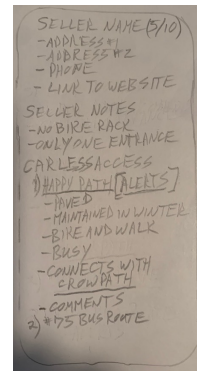 SELLER NAME (5/10)
- ADDRESS #1
- ADDRESS #2
- PHONE
- LINK TO WEBSITE
SELLER NOTES
- NO BIKE RACK
- ONLY ONE ENTRANCE
CARLESS ACCESS
1) HAPPY PATH [ALERTS]
- PAVED
- MAINTAINED IN WINTER
- BIKE AND WALK
- BUSY
- CONNECTS WITH
CROW PATH
- COMMENTS
2) #75 BUS ROUTE